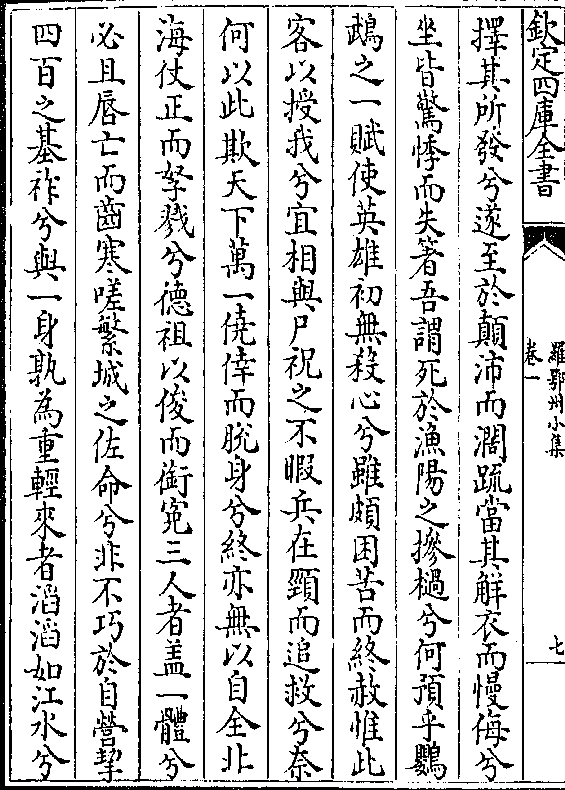 欽定四庫全書
羅鄂州小集
卷一
七
擇其所發兮遂至於顛沛而濶疏當其解衣而慢侮兮
坐皆驚悸而失著吾謂死於漁陽之摻檛兮何預乎鸚
鵡之一賦使英雄初無殺心兮雖頗困苦而終赦惟此
客以授我兮宜相與尸祝之不暇兵在頸而追救兮奈
何以此欺天下萬一僥倖而脫身兮終亦無以自全北
海仗正而孥戮兮德祖以俊而銜寃三人者盖一體兮
必且唇亡而齒寒嗟繁城之佐命兮非不巧於自營挈
四百之基祚兮與一身孰為重輕來者滔滔如江水兮